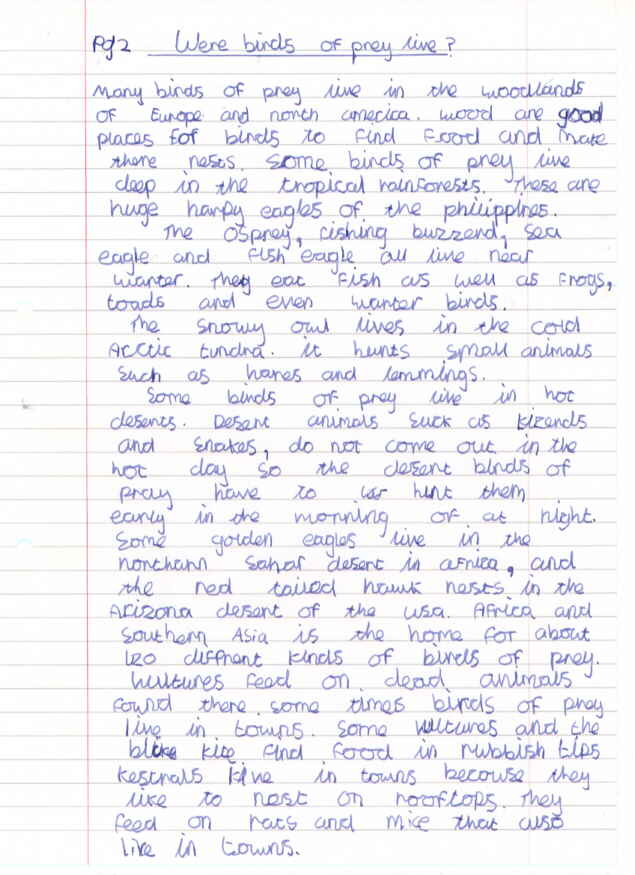 Pg2 Were birds of prey live?
Many birds of prey live in the woodlands
of Europe and north america. wood are good
places for birds to find food and make
there nests. Some birds of prey live
deep in the tropical rainforests. These are
huge harpy eagles of the philippines.
The osprey, fishing buzzerd, sea
eagle and fish eagle all live near
warter. They eat fish as well as frogs,
toads and even warter birds.
The snowy owl lives in the cold
Arctic tundra. it hunts small animals
such as hares and lemmings.
Some birds of prey live in hot
deserts. Desert animals suck as lizerds
and snakes, do not come out in the
hot day so the desert birds of
pray have to hunt them
early in the morning or at night.
Some golden eagles live in the
northarn Sahar desert in africa, and
the red tailed hawk nests in the
Arizona desert of the usa. Africa and
Southern Asia is the home for about
120 diffrent kinds of birds of prey.
Vultures fead on dead animals
found there. some times birds of prey
live in towns. Some vultures and the
black kite find food in rubbish tips
kestrals live in towns becouse they
like to nest on rooftops. They
feed on rats and mice that also
live in towns.